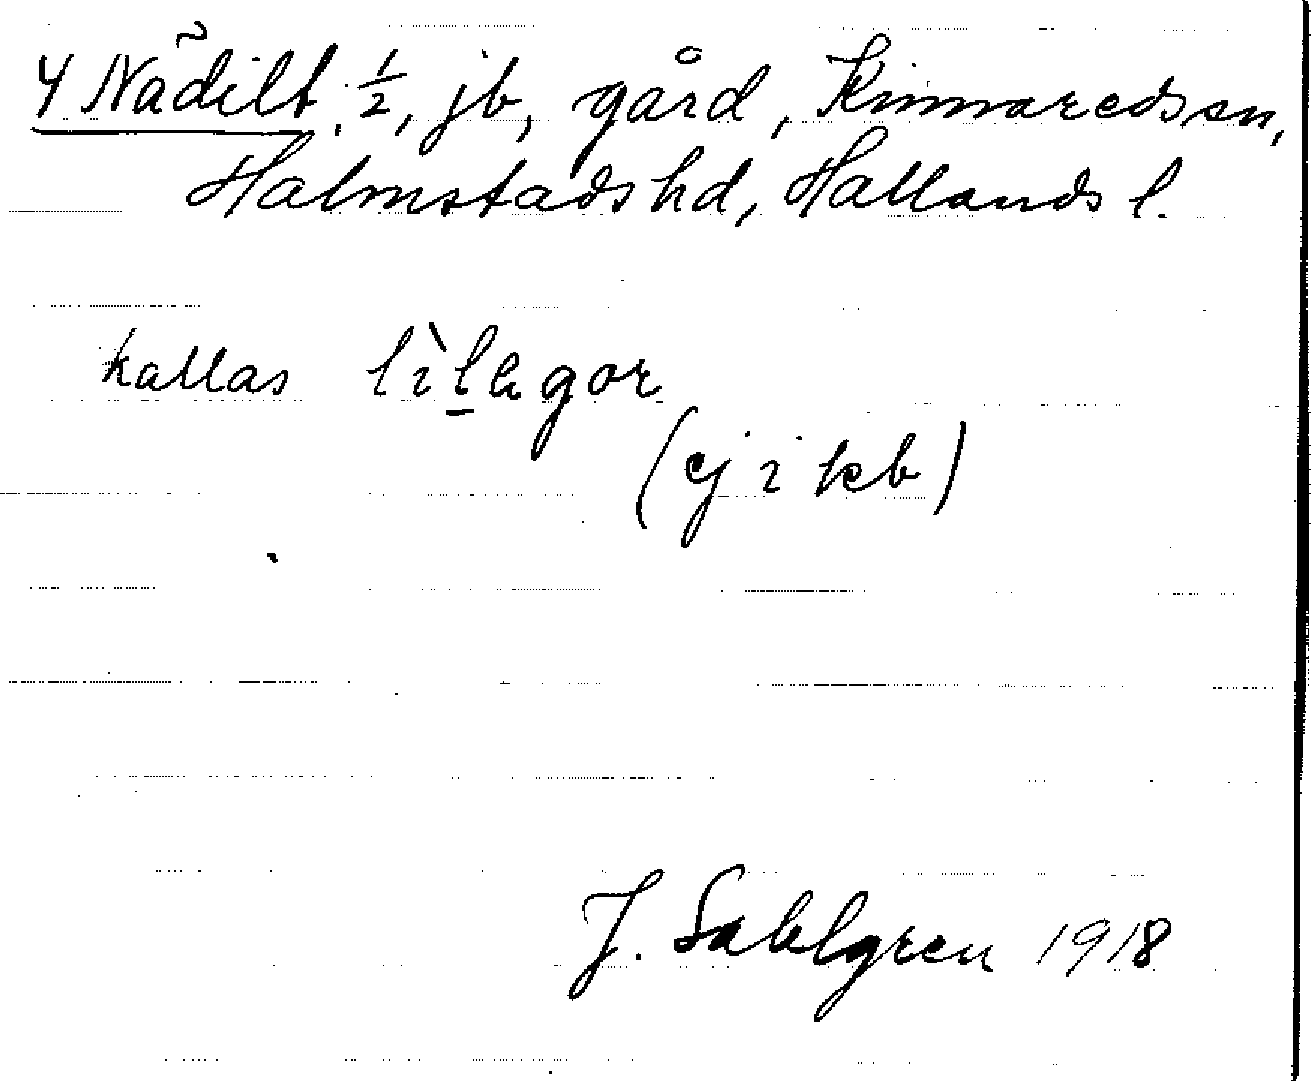 4 Nådilt, 1/2, jb, gård, Kinnareds sn,
Halmstads hd, Hallands l.
kallas
(ej i kb)
J. Sahlgren 1918